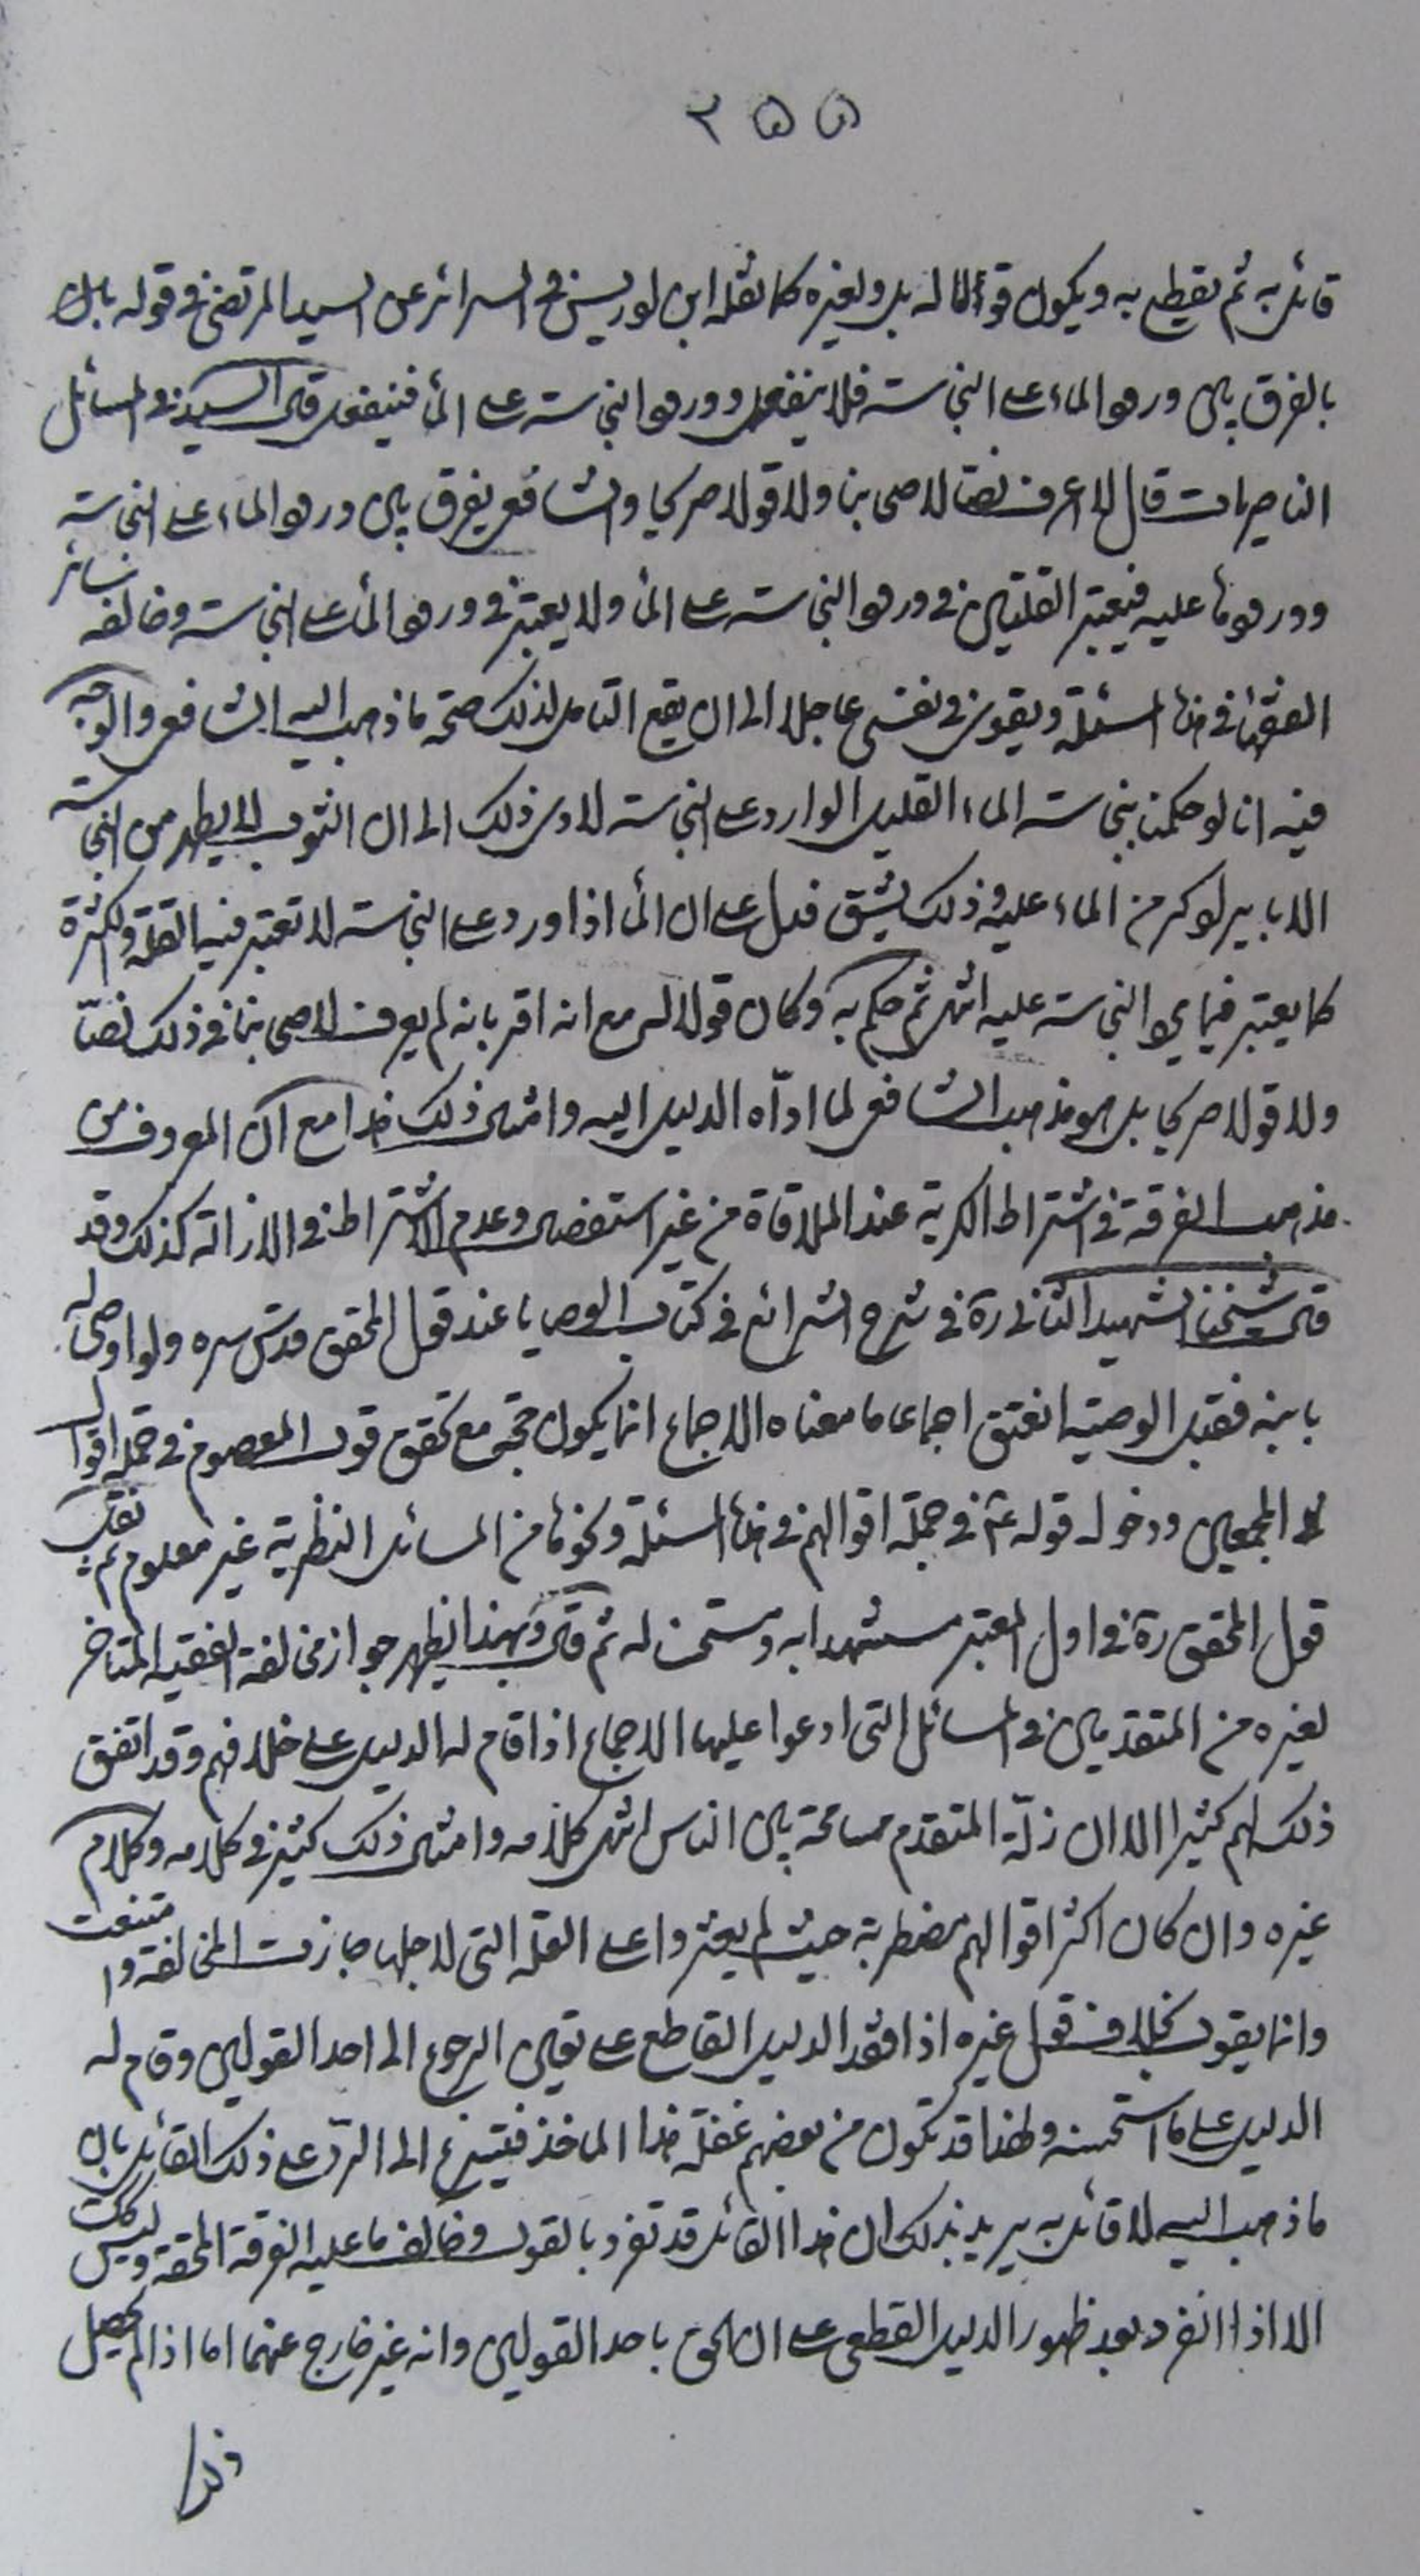 ٢٥٥
قائل به ثم يقطع به ويكون قولا له بل ولغيره كما نقله ابن ادريس في السرائر عن السيد المرتضى في قوله
بالفرق بين ورود الماء على النجاسة فلا ينفعل وورود النجاسة على الماء فينفعل قال السيد في المسائل
الناصريات قال لا اعرف نصا لاصحابنا ولا قولا صريحا والشافعي يفرق بين ورود الماء على النجاسة
وورودها عليه فيعتبر القلتين في ورود النجاسة على الماء ولا يعتبر في ورود الماء على النجاسة وخالفه سائر
الفقهاء في هذه المسئلة ويقوى في نفسي عاجلا الى ان يقع التامل لذلك صحة ما ذهب اليه الشافعي والوجه
فيه انا لو حكمنا بنجاسة الماء القليل الوارد على النجاسة لادى ذلك الى ان الثوب لا يطهر من النجاسة
الا بايراد كر من الماء عليه وذلك يشق فدل على ان الماء اذا ورد على النجاسة لا تعتبر فيه القلة والكثرة
كما يعتبر فيما يرد النجاسة عليه انتهى ثم حكم به وكان قولا له مع انه اقر بانه لم يعرف لاصحابنا في ذلك نصا
ولا قولا صريحا بل هو مذهب الشافعي لما اداه الدليل اليه وامثال ذلك هذا مع ان المعروف من
مذهب الفرقة في اشتراط الكرية عند الملاقاة من غير استفصال وعدم الاشتراط في الازالة كذلك وقد
قال شيخنا الشهيد الثاني ره في شرح الشرائع في كتاب الوصايا عند قول المحقق قدس سره ولو اوصى له
بابنه فقبل الوصية انعتق اجماعا ما معناه الاجماع انما يكون حجة مع تحقق قول المعصوم في جملة اقوال
المجمعين ودخول قوله ع في جملة اقوالهم في هذه المسئلة ونحوها من المسائل النظرية غير معلوم ثم نقل
قول المحقق ره في اول المعتبر مستشهدا به ومستحسنا له ثم قال وبهذا يظهر جواز مخالفة الفقيه المتاخر
لغيره من المتقدمين في المسائل التي ادعوا عليها الاجماع اذا قام له الدليل على خلافهم وقد اتفق
ذلك لهم كثيرا الا ان زلة المتقدم مسامحة بين الناس انتهى كلامه وامثال ذلك كثير في كلامه وكلام
غيره وان كان اكثر اقوالهم مضطربة حيث لم يعثروا على العلة التي لاجلها جازت المخالفة وامتنعت
وانما يقول بخلاف قول غيره اذا فقد الدليل القاطع على تعين الرجوع الى احد القولين وقام له
الدليل على ما استحسنه ولهذا قد تكون من بعضهم غفلة هذا الماخذ فيتسرع الى الرد على ذلك القائل بان
ما ذهب اليه لا قائل به يريد بذلك ان هذا القائل قد تفرد بالقول وخالف ما عليه الفرقة المحقة وليس كذلك
الا اذا انفرد بعد ظهور الدليل القطعي على ان الحق باحد القولين وانه غير خارج عنهما اما اذا لم يحصل
هذا